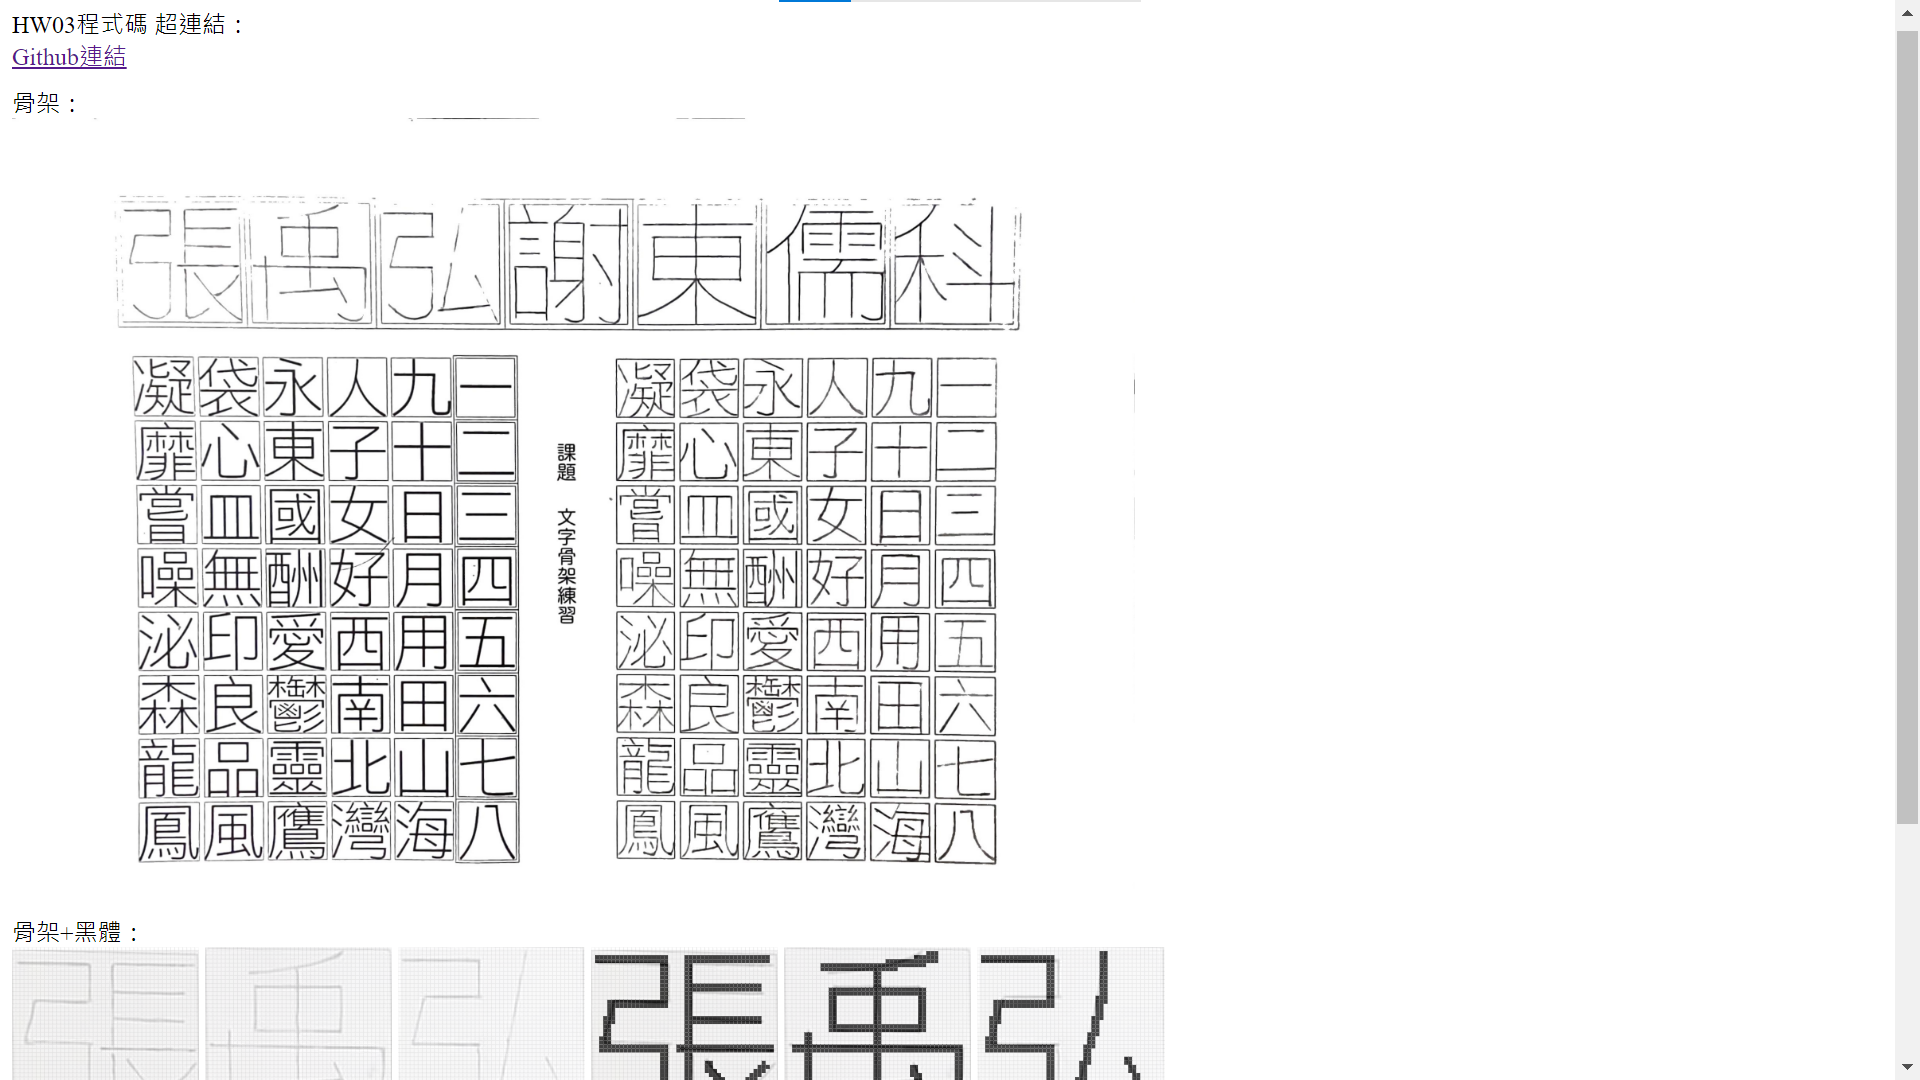 HW03程式碼 超連結：
Github連結
骨架：
張禹弘謝東儒科
凝袋永人九一
靡心東子十二
嘗皿國女日三
噪無酬好月四
泌印愛西用五
森良鬱南田六
龍品靈北山七
鳳風鷹灣海八
課題　文字骨架練習
凝袋永人九一
靡心東子十二
嘗皿國女日三
噪無酬好月四
泌印愛西用五
森良鬱南田六
龍品靈北山七
鳳風鷹灣海八
骨架+黑體：
張禹弘張禹弘